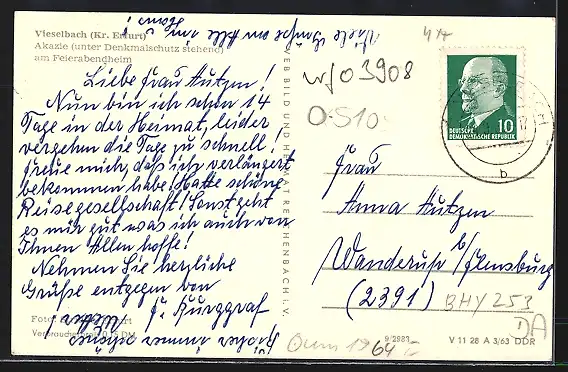 Vieselbach (Kr. Erfurt)
Akazie (unter Denkmalschutz stehend)
am Feierabendheim
Liebe Frau Autzen!
Nun bin ich schon 14
Tage in der Heimat, leider
vergehen die Tage zu schnell!
Freue mich, daß ich verlängert
bekommen habe! Hatte schöne
Reisegesellschaft! Sonst geht
es mir gut was ich auch von
Ihnen Allen hoffe!
Nehmen Sie herzliche
Grüße entgegen von
F. Burggraf
Viele Grüße an Alle
immer schönes
Wetter!
Foto:
Verbraucherpreis 0,15 DM
VEB BILD UND HEIMAT REICHENBACH I. V.
03908
0-S10
DEUTSCHE
DEMOKRATISCHE REPUBLIK
10
b
Frau
Anna Autzen
Wanderup b/Flensburg
(2391)
BHY 253
DA
9/2983
1964
V 11 28 A 3/63 DDR